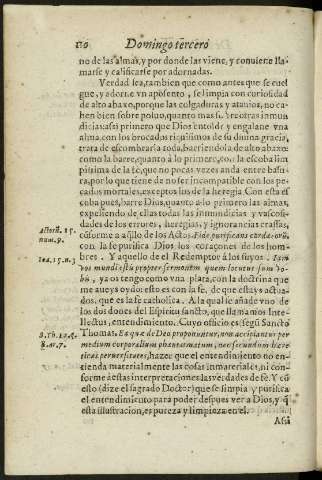 110 Domingo tercero
no de las almas, y por donde las viene, y conuiene lla-
marse y calificarse por adornadas.
Verdad sea, tambien que como antes que se cuel
gue, y adorne vn aposento, se limpia con curiosidad
de alto abaxo, porque las colgaduras y atauios, no ca-
hen bien sobre poluo, quanto mas sobre otras inmun
dicias: assi primero que Dios entolde y engalane vna
alma, con los brocados riquissimos de su diuina gracia,
trata de escombrarla toda, barriendola de alto abaxo:
como la barre, quanto à lo primero, con la escoba lim
pissima de la fe, que no pocas vezes anda entre basu-
ra, por lo que tiene de no ser incompatible con los pe-
cados mortales, exceptos los de la heregia. Con esta es
coba pues, barre Dios, quanto a lo primero las almas,
expeliendo de ellas todas las inmundicias y vascosi-
dades de los errores, heregias, y ignorancias crassas,
Actorũ. 15. cõforme a aq̃llo de los Actos. Fide purificans corda eorũ,
num. 9. con la fe purifica Dios los coraçones de los hom-
bres. Y aquello de el Redemptor à los suyos. Iam
Ioa. 15. n. 3 vos mundi estis propter sermonem quem locutus sum vo-
bis, ya os tengo como vna plata, con la doctrina que
me aueys oydo: esto es con la fe, de que estays actua-
dos, que es la fe catholica. A la qual le añade vno de
los dones del Espiritu sancto, que llamamos Inte-
llectus, entendimiento. Cuyo oficio es segũ Sancto
Thomas. Ea quæ de Deo proponuntur, non accipiantur per
8. ar. 7. medium corporalium phantasmatum, nec secundum hære
ticas peruersitates, hazer que el entendimiento no en-
tienda materialmente las cosas inmateriales, ni con-
forme à estas interpretaciones las verdades de fe. Y cõ
esto (dize el sagrado Doctor) que se limpia y purifica
el entendimiento para poder despues ver a Dios, y q̃
esta illustracion, es pureza y limpieza en el.
Assi